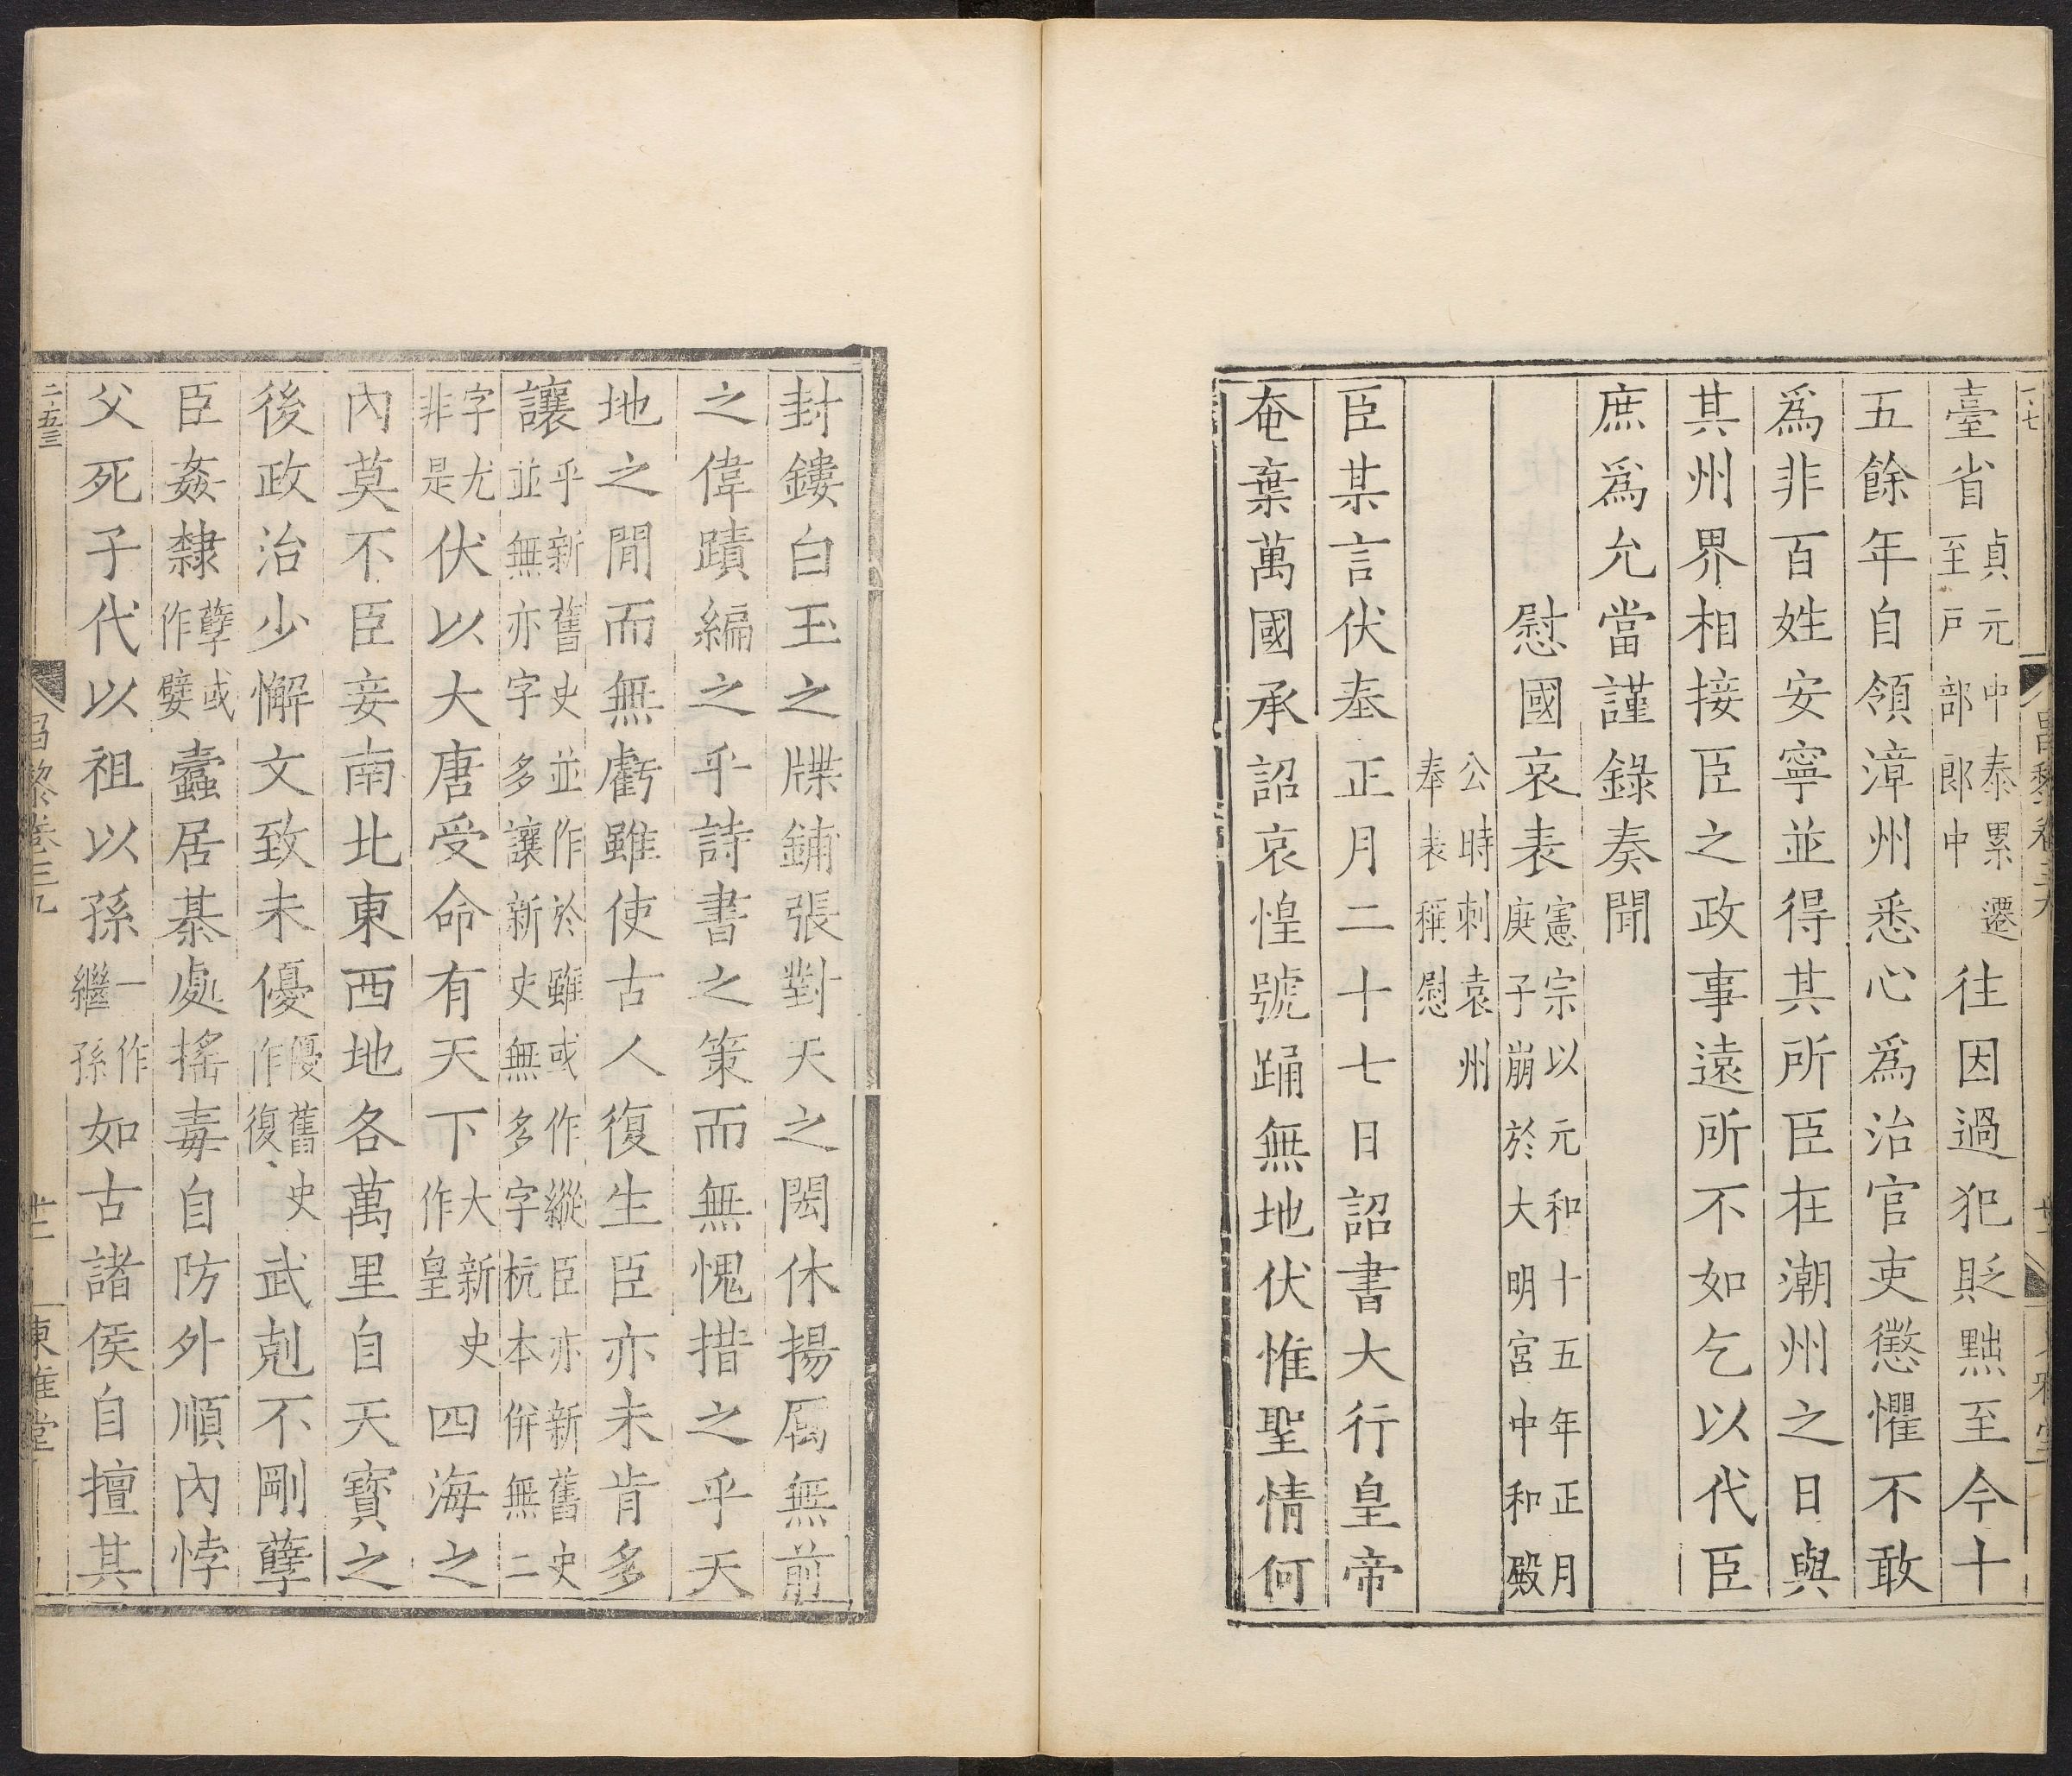 臺省貞元中泰累遷至戸部郎中往因過犯貶黜至今十
五餘年自領漳州悉心爲治官吏懲懼不敢
爲非百姓安寧並得其所臣在潮州之日與
其州界相接臣之政事遠所不如乞以代臣
庶爲允當謹錄奏聞
慰國哀表憲宗以元和十五年正月庚子崩於大明宮中和殿
公時刺袁州奉表稱慰
臣某言伏奉正月二十七日詔書大行皇帝
奄棄萬國承詔哀惶號踊無地伏惟聖情何
封鏤白玉之牒鋪張對天之閎休揚厲無前
之偉蹟編之乎詩書之策而無愧措之乎天
地之間而無虧雖使古人復生臣亦未肯多
讓乎新舊史並作於雖或作縱臣亦新舊史並無亦字多讓新史無多字杭本倂無二
字尤非是伏以大唐受命有天下大新史作皇四海之
內莫不臣妾南北東西地各萬里自天寶之
後政治少懈文致未優優舊史作復武剋不剛孽
臣姦隸孽或作嬖蠹居棊處搖毒自防外順內悖
父死子代以祖以孫一作繼孫如古諸侯自擅其
二五三
昌黎卷三九
東雅堂